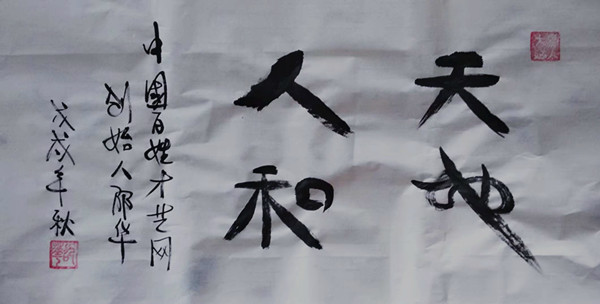 天地
人和
中國百姓才艺网
创始人华
戊戌年秋